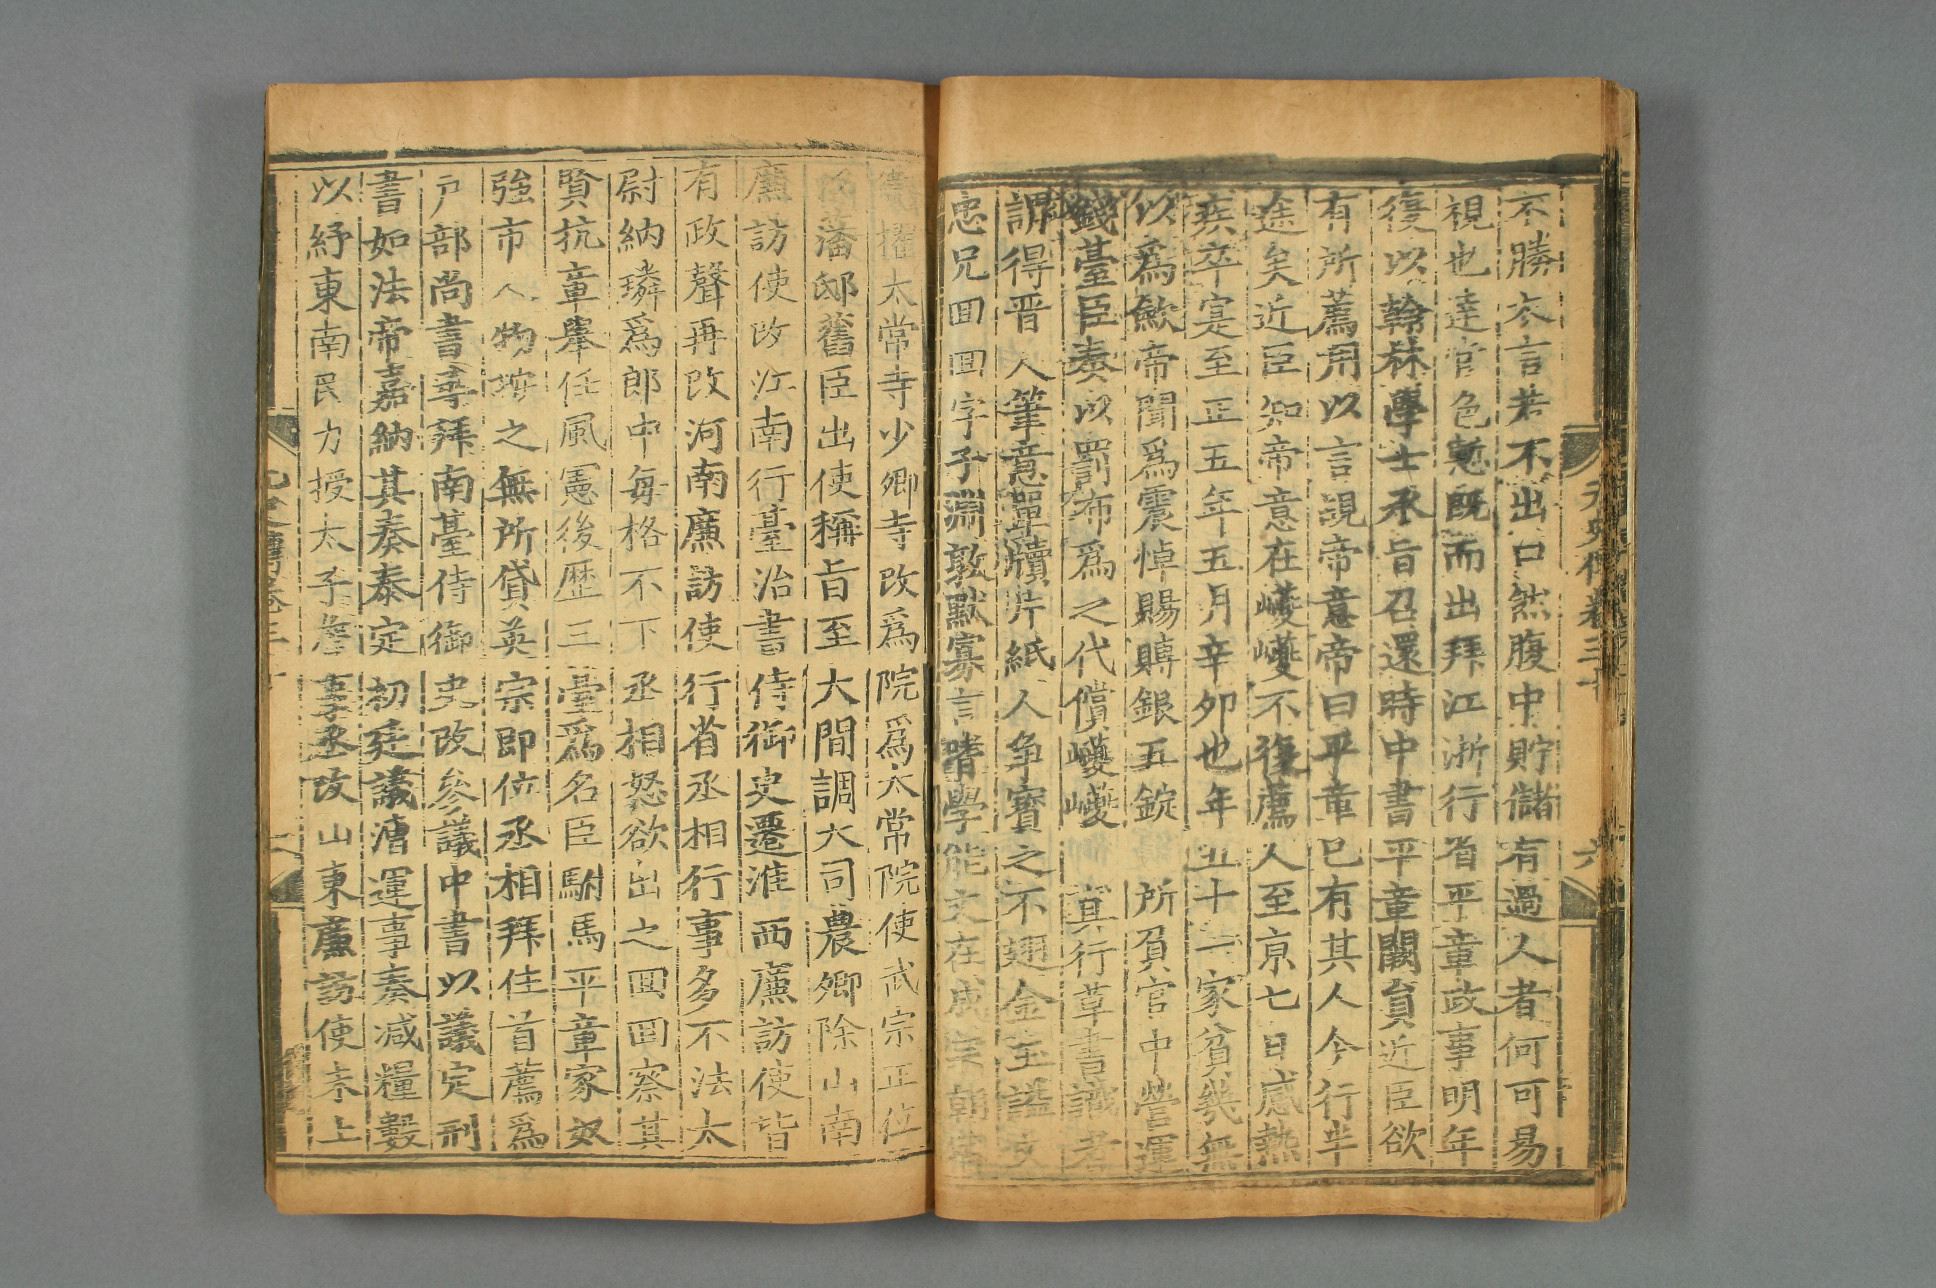 不勝衣言若不出口然腹中貯儲有過人者何可易
視也達官色慙旣而出拜江浙行省平章政事明年
復以翰林學士承旨召還時中書平章闕員近臣欲
有所薦用以言覘帝意帝曰平章已有其人今行半
途矣近臣知帝意在巙巙不復薦人至京七日感熱
疾卒寔至正五年五月辛卯也年五十一家貧幾無
以爲歛帝聞爲震悼賜賻銀五錠 所負官中營運
錢臺臣奏以罰布爲之代償巙巙 眞行草書識者
謂得晋人筆意單牘片紙人争寶之不翅金玉謚文
忠兄回回字子淵敦默寡言嗜學能文在成宗朝宿
衛擢太常寺少卿寺改爲院爲太常院使武宗正位
藩邸舊臣出使稱旨至大間調大司農卿除山南
廉訪使改江南行臺治書侍御史遷淮西廉訪使皆
有政聲再改河南廉訪使行省丞相行事多不法太
尉納璘爲郎中每格不下丞相怒欲出之回回察其
賢抗章舉任風憲後歴三臺爲名臣駙馬平章家奴
強市人物按之無所貸英宗即位丞相拜住首薦爲
户部尚書尋拜南臺侍御史改叅議中書以議定刑
書如法帝嘉納其奏泰定初廷議漕運事奏減糧數
以紓東南民力授太子詹事丞改山東廉訪使未上
元史傳卷三十
六